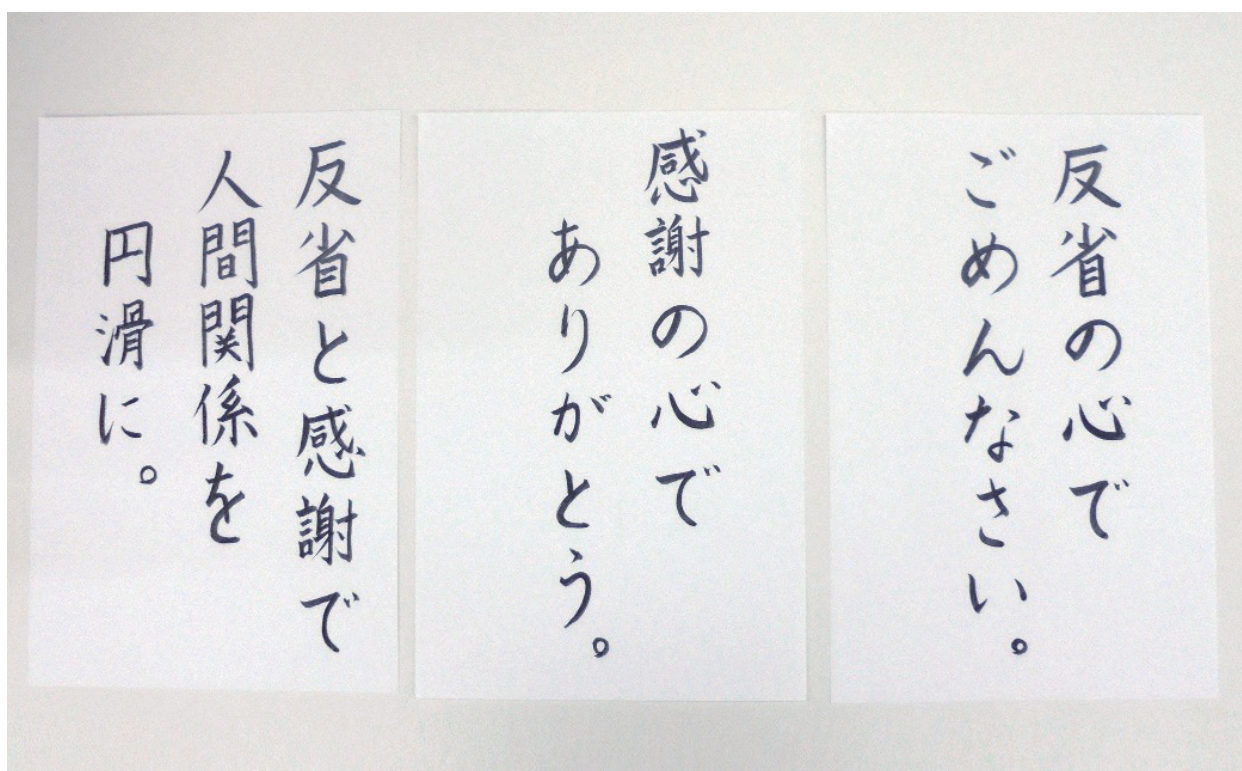 反省の心で
ごめんなさい。
感謝の心で
ありがとう。
反省と感謝で
人間関係を
円滑に。